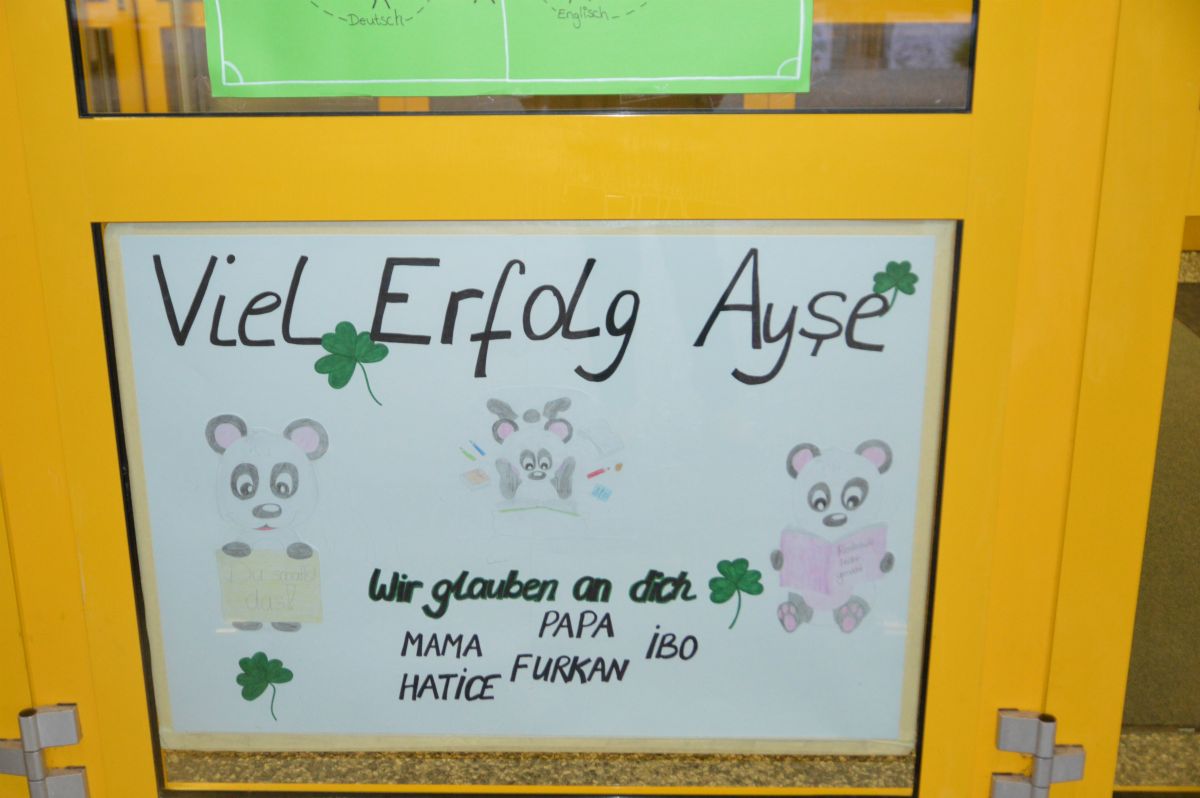 Deutsch Englisch
Viel Erfolg Ayşe
Du schaffst
das!
Wir glauben an dich
PAPA
MAMA İBO
FURKAN
HATİCE